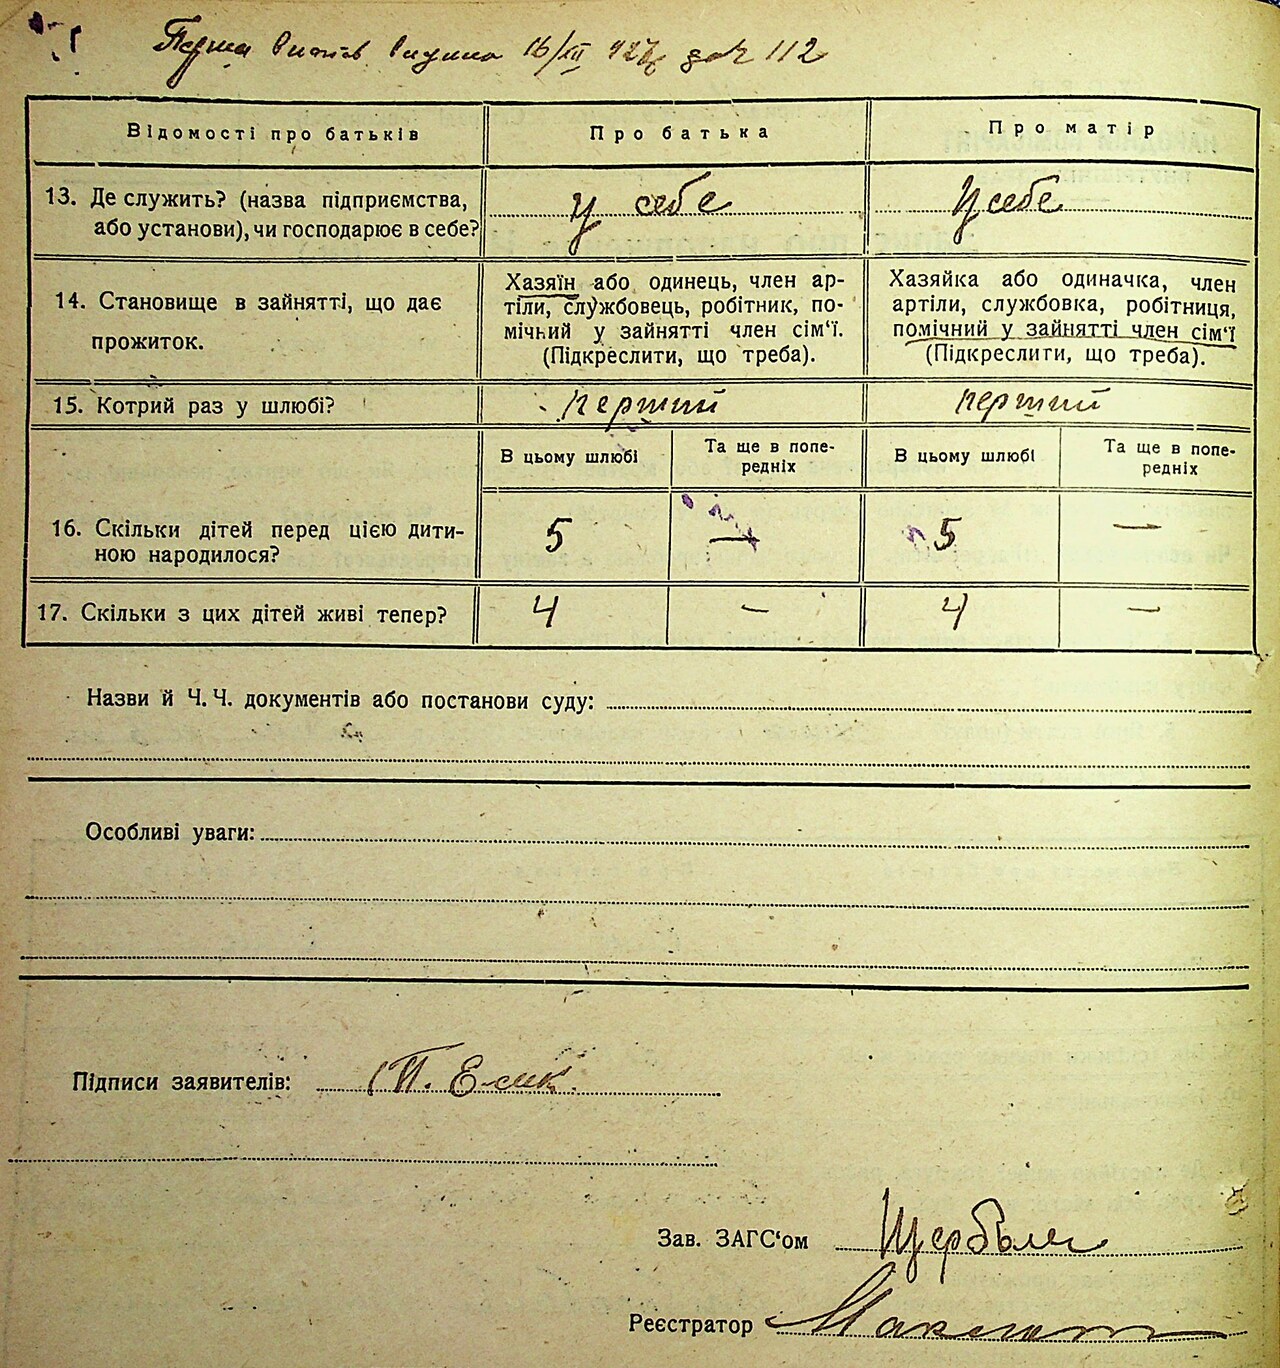 Перша 16/XII 112
Відомості про батьків
Про батька
Про матір
13. Де служить? (назва підприємства,
або установи), чи господарює в себе?
у себе
у себе
14. Становище в зайнятті, що дає
прожиток.
Хазяїн або одинець, член ар-
тіли, службовець, робітник, по-
мічний у зайнятті член сім'ї.
(Підкреслити, що треба).
Хазяйка або одиначка, член
артіли, службовка, робітниця,
помічний у зайнятті член сім'ї
(Підкреслити, що треба).
15. Котрий раз у шлюбі?
перший
перший
В цьому шлюбі
Та ще в попе-
редніх
В цьому шлюбі
Та ще в попе-
редніх
16. Скільки дітей перед цією дити-
ною народилося?
5
—
5
—
17. Скільки з цих дітей живі тепер?
4
—
4
—
Назви й Ч. Ч. документів або постанови суду:
Особливі уваги:
Підписи заявителів: П.
Зав. ЗАГС'ом
Реєстратор